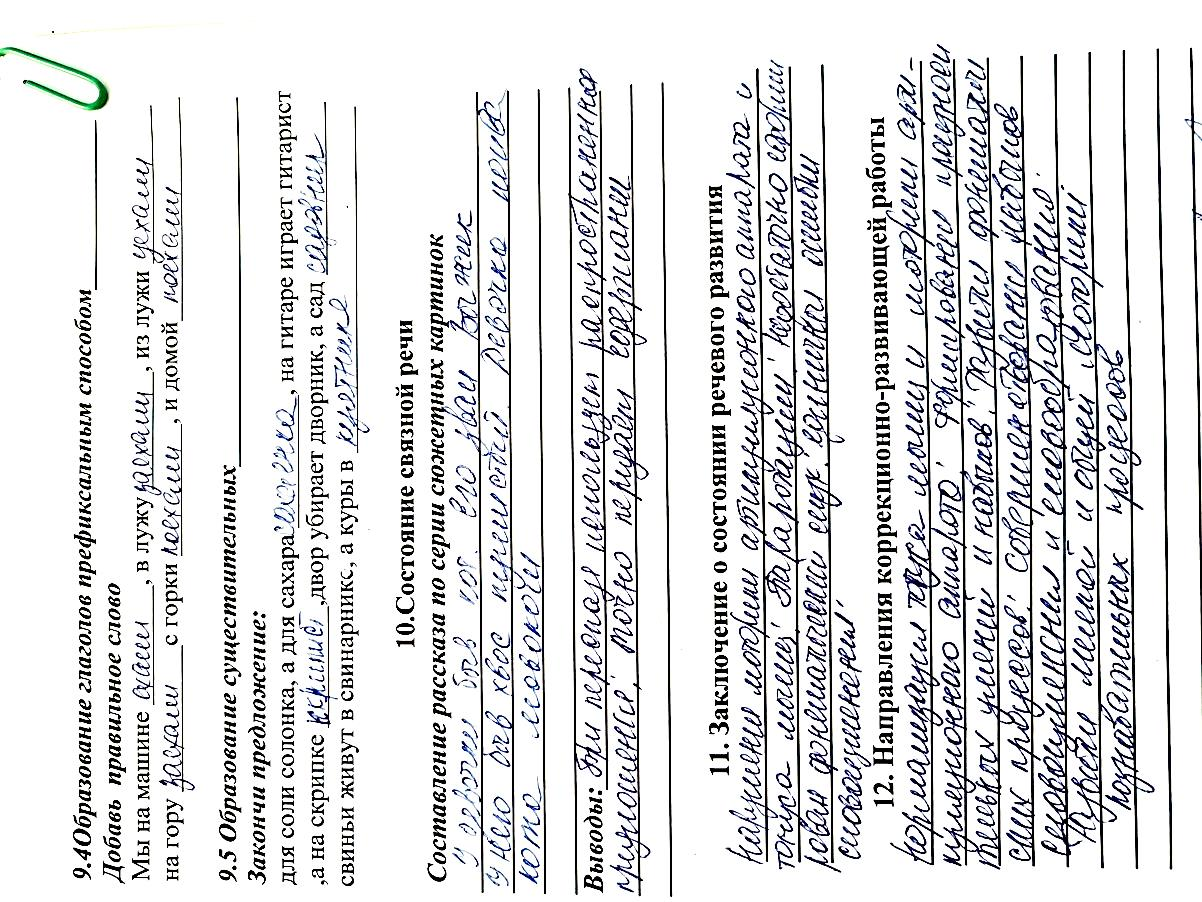 9.4Образование глаголов префиксальным способом
Добавь правильное слово
Мы на машине ехали, в лужу заехали, из лужи уехали
на гору заехали с горки поехали, и домой поехали
9.5 Образование существительных
Закончи предложение:
для соли солонка, а для сахара, на гитаре играет гитарист
,а на скрипке, двор убирает дворник, а сад садовник
свиньи живут в свинарнике, а куры в курятнике
10.Состояние связной речи
Составление рассказа по серии сюжетных картинок
У девочки был кот. его звали
У него был хвос пушистый. Девочка
кота
Выводы: При пересказе использует распространенные
предложения, точно передал содержание
11. Заключение о состоянии речевого развития
Нарушение моторики артикуляционного аппарата и
тонуса мышц. недостаточно сформи
рован фонематический слух, единичны ошибки
словоизменения
12. Направления коррекционно-развивающей работы
Нормализация тонуса мышц и моторики арти-
куляционного аппарата, формирование
умений и навыков, развитие фонемати
ских процессов, совершенствование навыков
словоизменения и словообразования.
Развитие мелкой и общей моторики
познавательных процессов